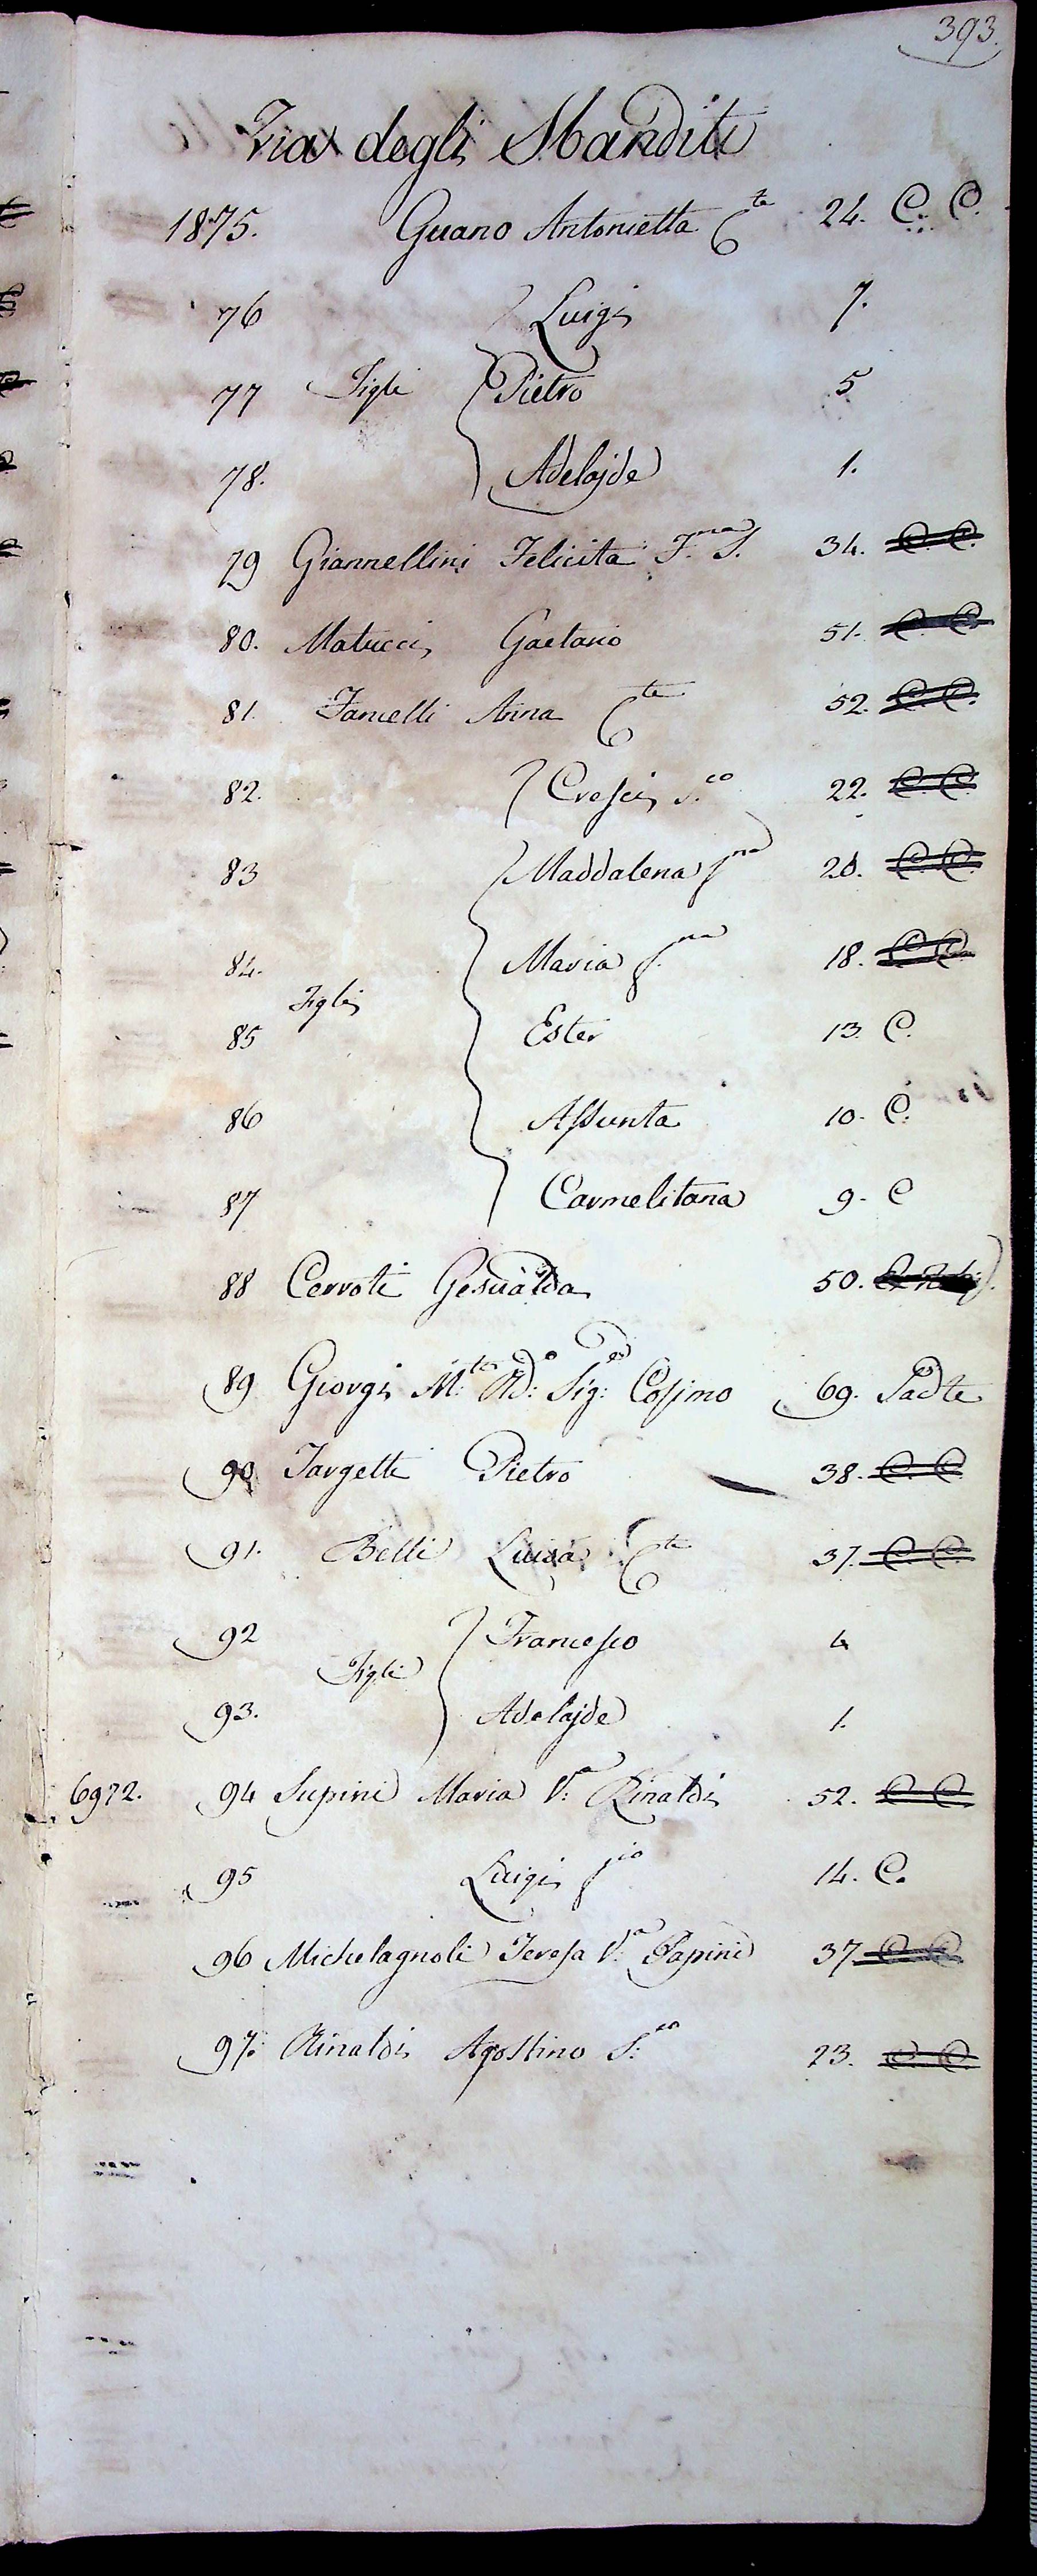 393.
Via degli Sbanditi
1875. Guano Antonietta C.te 24. C. C.
76 Luigi 7.
77 Figli Pietro 5
78. Adelajde 1.
79 Giannellini Felicita F.ma S. 34. C. C.
80. Matucci Gaetano 51. C. C.
81. Fancelli Anna C.te 52. C. C.
82. Cresci S.co 22. C. C.
83 Maddalena S.na 20. C. C.
84. Maria S.na 18. C. C.
Figli
85 Ester 13. C.
86 Assunta 10. C.
87 Carmelitana 9. C
88 Cerroti Gesualda 50.
89 Giorgi M.to R.do Sig.r Cosimo 69. Sacdte
90 Targetti Pietro 38. C. C.
91. Belli Luisa C.te 37. C. C.
92 Francesco 4
Figli
93. Adelajde 1.
6972. 94 Supini Maria V.a Rinaldi 52. C. C.
95 Luigi f.io 14. C.
96 Michelagnoli Teresa V.a Papini 37 C. C.
97. Rinaldi Agostino S.co 23. C. C.